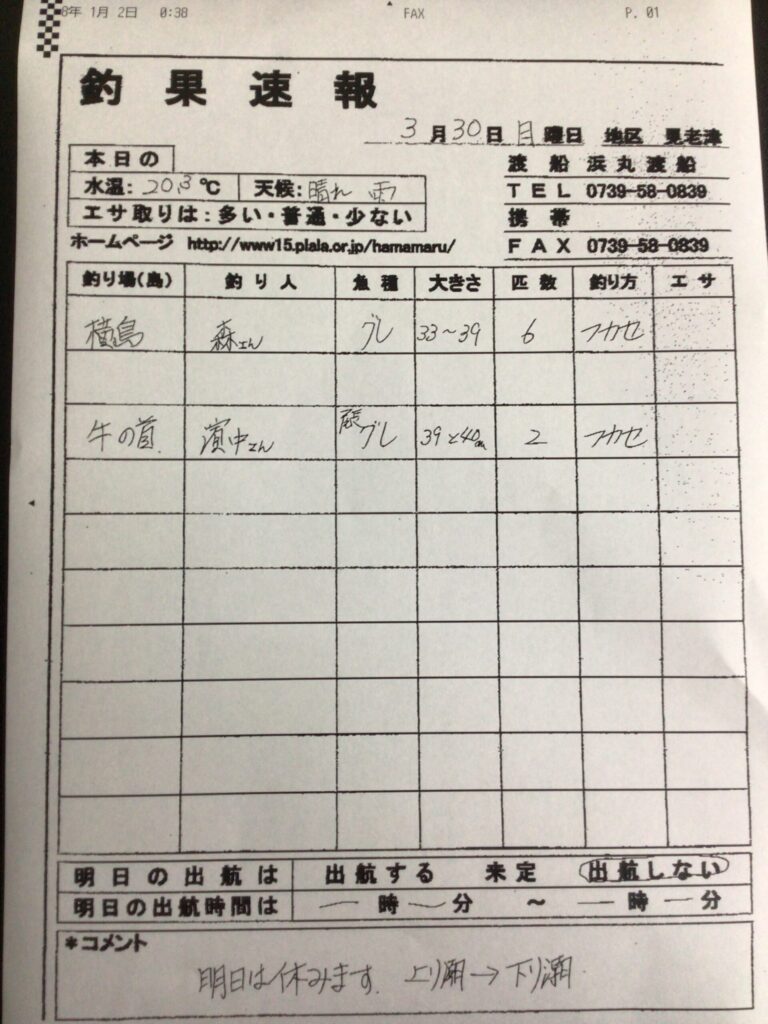 8年 1月 2日 0:38 FAX P. 01
釣果速報
3月30日月曜日 地区 見老津
本日の
水温:20.3℃ 天候:晴れ 雨
エサ取りは:多い・普通・少ない
渡船 浜丸渡船
TEL 0739-58-0839
携帯
ホームページ http://www15.plala.or.jp/hamamaru/
FAX 0739-58-0839
釣り場(島) 釣り人 魚種 大きさ 匹数 釣り方 エサ
横島 森さん グレ 33〜39 6 フカセ
牛の首 濱中さん グレ 39と40cm 2 フカセ
明日の出航は 出航する 未定 出航しない
明日の出航時間は ―時―分 〜 ―時―分
*コメント
明日は休みます. 上り潮→下り潮